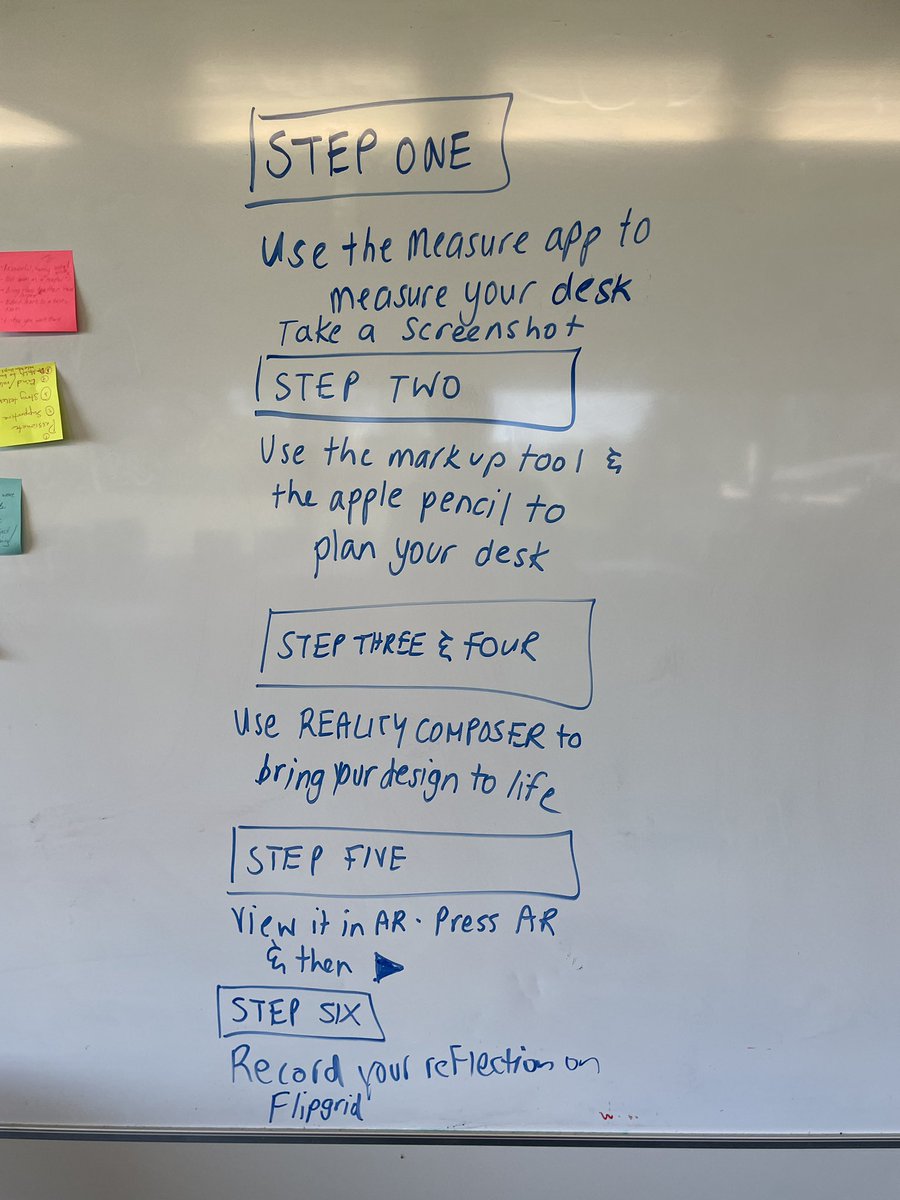 STEP ONE
Use the Measure app to
measure your desk
Take a Screenshot
STEP TWO
Use the markup tool &
the apple pencil to
plan your desk
STEP THREE & FOUR
Use REALITY COMPOSER to
bring your design to life
STEP FIVE
View it in AR. Press AR
& then ▶
STEP SIX
Record your reflection on
Flipgrid
Passionate
Supportive